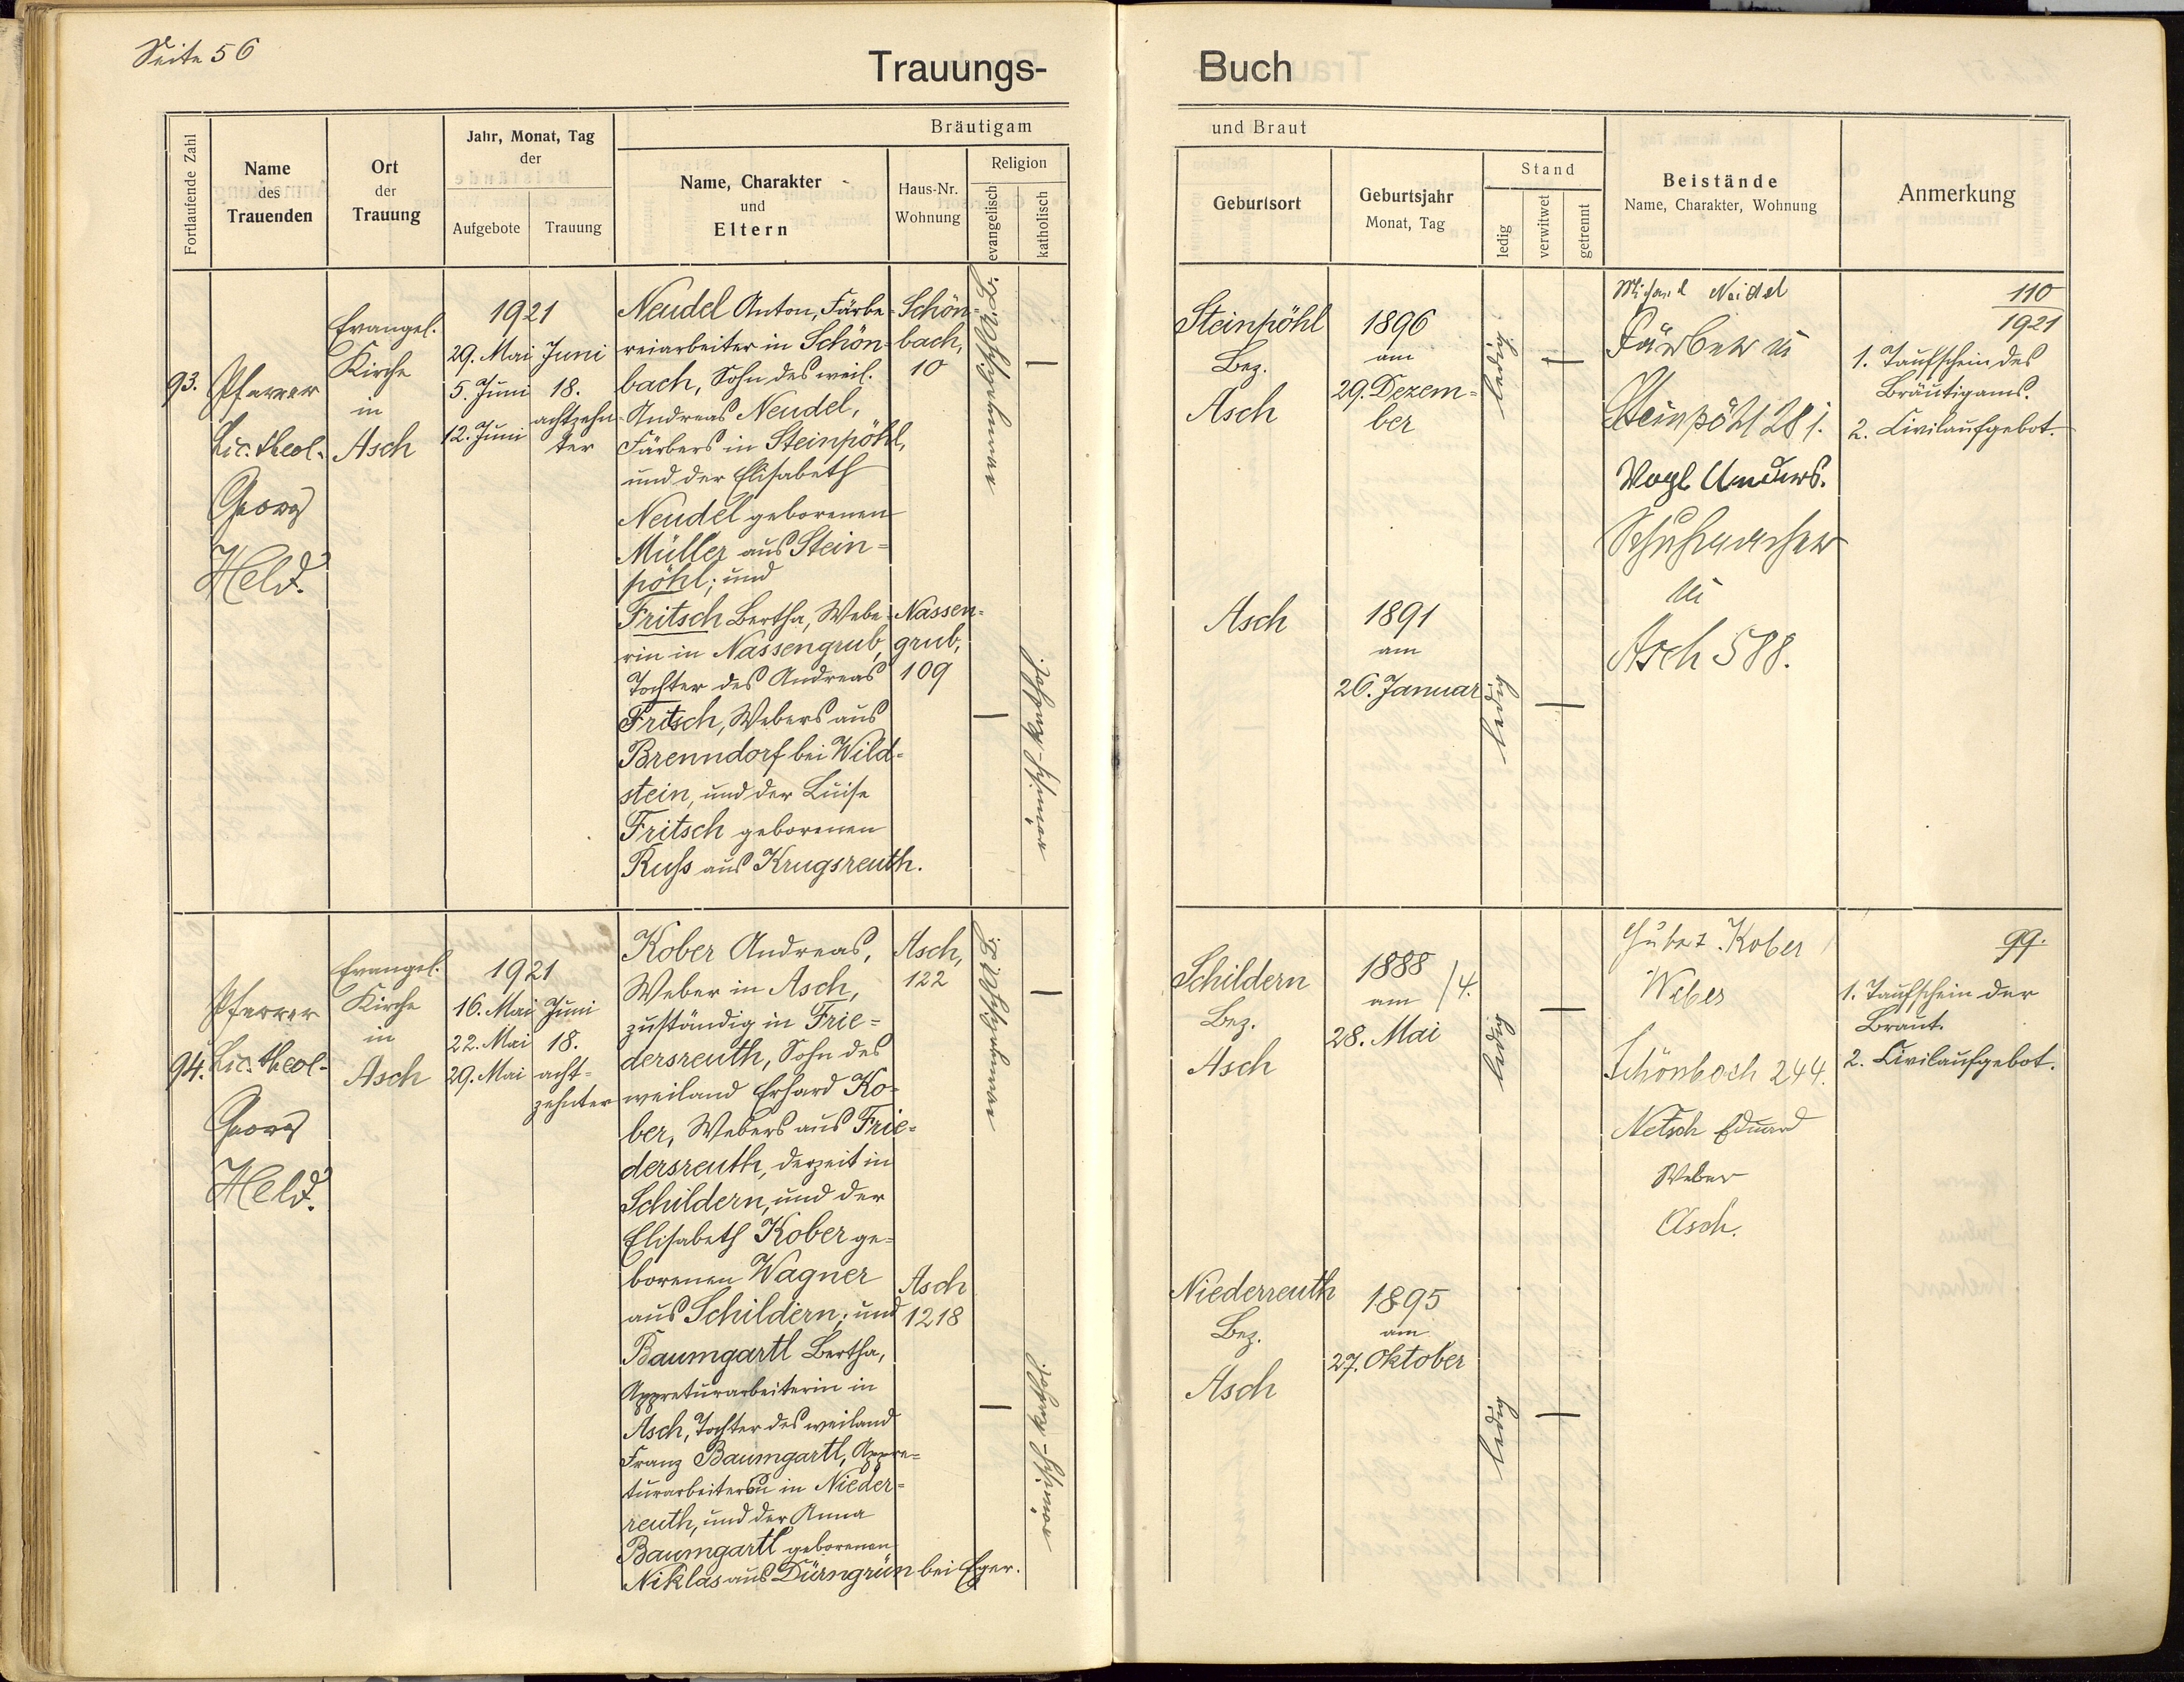 Seite 56
Trauungs-
Buch
Fortlaufende Zahl
Name
des
Trauenden
Ort
der
Trauung
Jahr, Monat, Tag
der
Aufgebote
Trauung
Bräutigam
Name, Charakter
und
Eltern
Haus-Nr.
Wohnung
Religion
evangelisch
katholisch
und Braut
Geburtsort
Geburtsjahr
Monat, Tag
Stand
ledig
verwitwet
getrennt
Beistände
Name, Charakter, Wohnung
Anmerkung
93.
Pfarrer
Lic. theol.
Georg
Held.
Evangel.
Kirche
in
Asch
1921
29. Mai
5. Juni
12. Juni
Juni
18.
achtzehn-
ter
Neudel Anton, Färbe-
reiarbeiter in Schön-
bach, Sohn des weil.
Andreas Neudel,
Färbers in Steinpöhl,
und der Elisabeth
Neudel geborenen
Müller aus Stein-
pöhl; und
Fritsch Bertha, Webe-
rin in Nassengrub,
Tochter des Andreas
Fritsch, Webers aus
Brenndorf bei Wild-
stein, und der Luise
Fritsch geborenen
Russ aus Krugsreuth.
Schön-
bach,
10
Nassen-
grub,
109
evangelisch A.B.
römisch-kathol.
Steinpöhl
Bez.
Asch
1896
am
29. Dezem-
ber
ledig
Asch
1891
am
26. Januar
ledig
Neidel
Färber in
Steinpöhl 281.
Vogl Andreas.
Schuhmacher
in
Asch 588.
110
1921
1. Taufschein des
Bräutigams.
2. Civilaufgebot.
94.
Pfarrer
Lic. theol.
Georg
Held.
Evangel.
Kirche
in
Asch
1921
16. Mai
22. Mai
29. Mai
Juni
18.
acht-
zehnter
Kober Andreas,
Weber in Asch,
zuständig in Frie-
dersreuth, Sohn des
weiland Erhard Ko-
ber, Webers aus Frie-
dersreuth, derzeit in
Schildern, und der
Elisabeth Kober ge-
borenen Wagner
aus Schildern; und
Baumgartl Bertha,
Appreturarbeiterin in
Asch, Tochter des weiland
Franz Baumgartl, Appre-
turarbeiters in Nieder-
reuth, und der Anna
Baumgartl geborenen
Niklas aus Dürngrün bei Eger.
Asch,
122
Asch
1218
evangelisch A.B.
römisch-kathol.
Schildern
Bez.
Asch
1888
am /4.
28. Mai
ledig
Niederreuth
Bez.
Asch
1895
am
27. Oktober
ledig
Kober
Weber
Schönbach 244.
Netsch Eduard
Weber
Asch.
99.
1. Taufschein der
Braut.
2. Civilaufgebot.